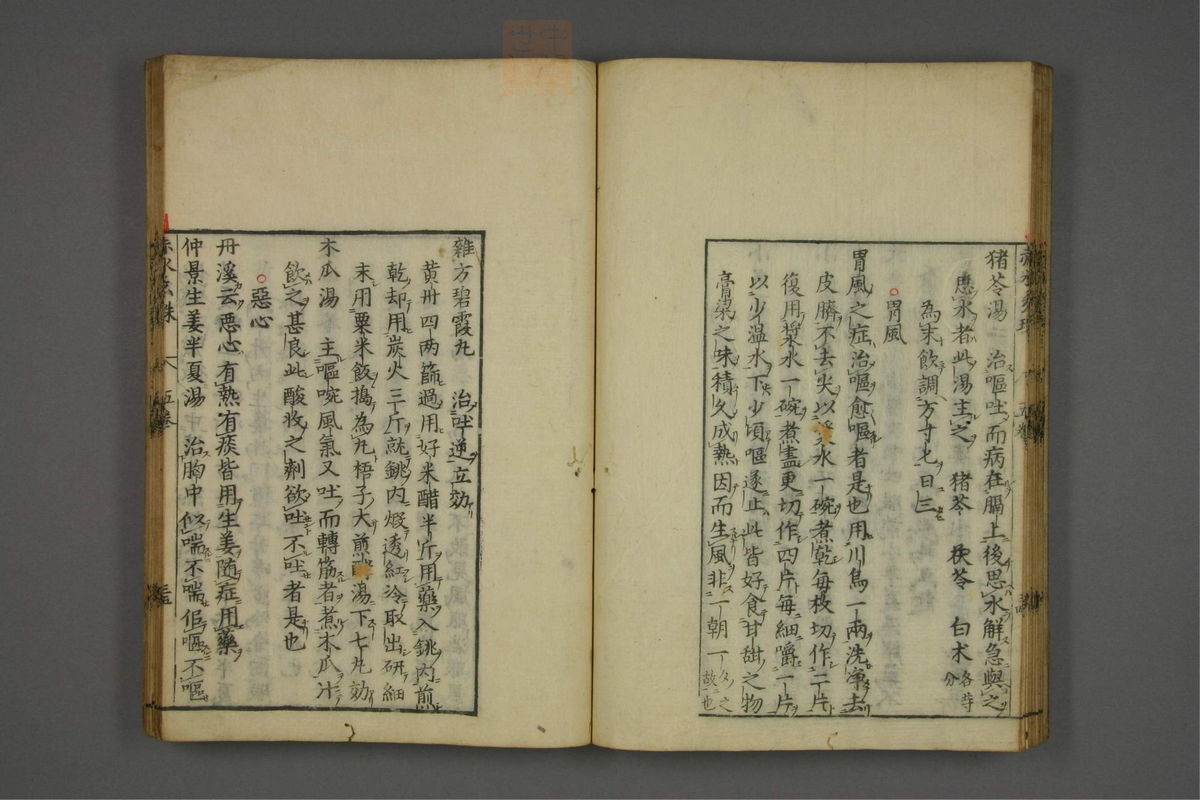 猪苓湯 治嘔吐而病在膈上後思水解急與之
思水者此湯主之 猪苓 茯苓 白朮各等分
為末飲調方寸匕日三
胃風
胃風之症治嘔愈嘔者是也用川烏一兩洗淨去
皮臍不去尖以漿水一碗煮乾每枚切作二片
復用漿水一碗煮盡更切作四片每細嚼一片
以少温水下少頃嘔遂止此皆好食甘甜之物
膏粱之味積久成熱因而生風非一朝一夕之故也
雜方碧霞丸 治吐逆立効
黄丹四两篩過用好米醋半斤用藥入銚內煎
乾却用炭火三斤就銚内煅透紅冷取出研細
末用粟米飯搗為丸梧子大煎湯下七丸効
木瓜湯 主嘔啘風氣又吐而轉筋者煮木瓜汁
飲之甚良此酸收之劑欲吐不吐者是也
惡心
丹溪云惡心有熱有痰皆用生姜随症用藥
仲景生姜半夏湯 治胸中似喘不喘佀嘔不嘔
五卷